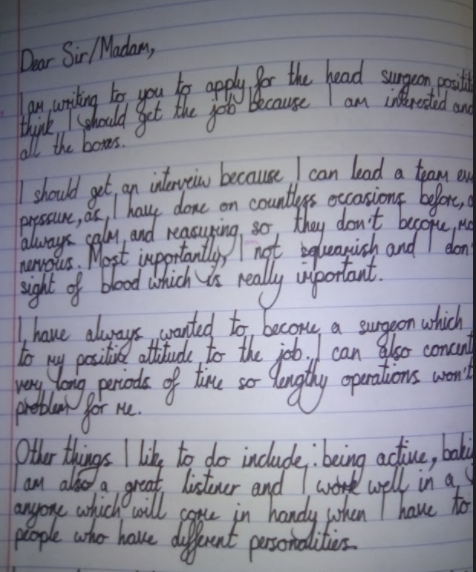 Dear Sir/Madam,
I am writing to you to apply for the head surgeon
think I should get the job because I am interested and
all the boxes.
I should get an interveiw because I can lead a team
pressure, as I have done on countless occasions before,
always calm and reasuring so they don't become
nervous. Most importantly, I not squeamish and I don'
sight of blood which is really important.
I have always wanted to become a surgeon which
to my positive attitude to the job. I can also
very long periods of time so lengthy operations won't
problem for me.
Other things I like to do include: being active,
I am also a great listener and I work well in a
anyone which will come in handy when I have to
people who have different personalities.